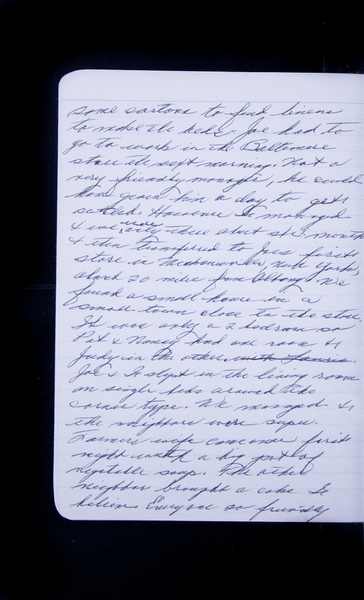 some cartons to find linens
to make the beds. Joe had to
go to work in the Baltimore
store the next morning. Not a
very friendly manager, he could
have given him a day to get
settled. However I managed
& we were only there about six months
& then transferred to Joe's first
store in New York,
about 20 miles from Albany. We
found a small house in a
small town close to the store.
It was only a 2 bedroom so
Pat & Nancy had one room &
Judy in the other with Laurie.
Joe & I slept in the living room
on single beds around the
corner type. We managed &
the neighbors were super.
Farmers wife came over first
night with a big pot of
vegetable soup. The other
neighbor brought a cake I
believe. Everyone so friendly